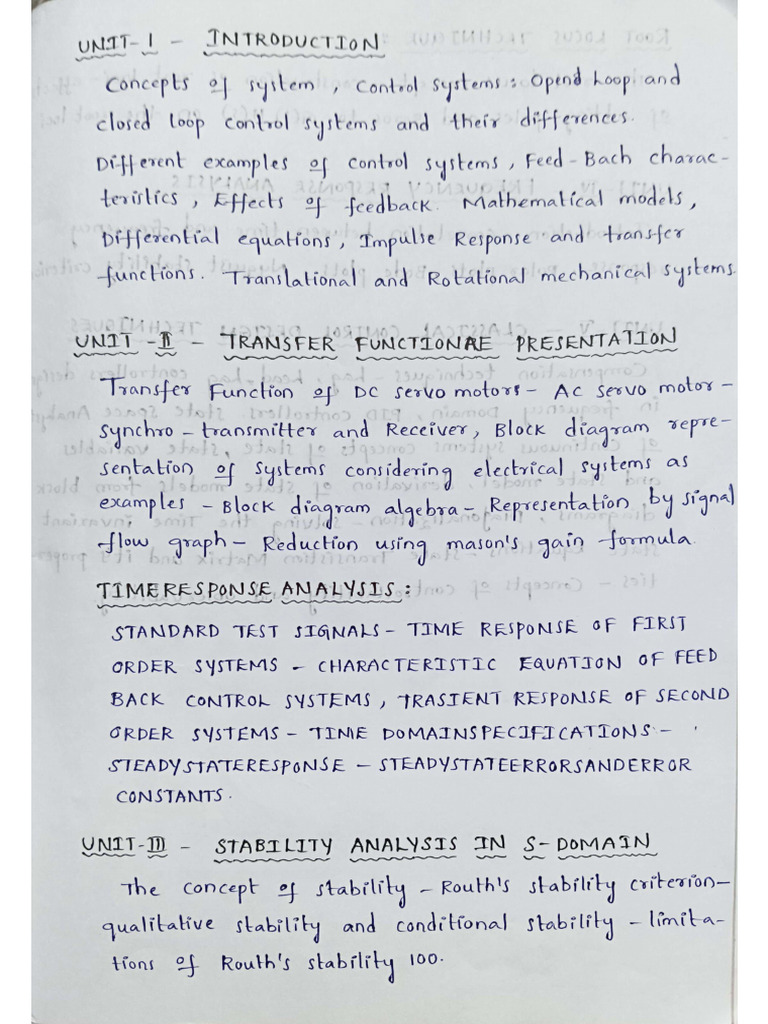 UNIT-I - INTRODUCTION
Concepts of system, Control systems: Opend Loop and
closed loop control systems and their differences.
Different examples of control systems, Feed-Bach charac-
teristics, Effects of feedback. Mathematical models,
Differential equations, Impulse Response and transfer
functions. Translational and Rotational mechanical systems.
UNIT-II - TRANSFER FUNCTIONRE PRESENTATION
Transfer Function of DC servo motors - AC servo motor-
synchro-transmitter and Receiver, Block diagram repre-
sentation of systems considering electrical systems as
examples - Block diagram algebra - Representation by signal
flow graph - Reduction using mason's gain formula.
TIMERESPONSE ANALYSIS:
STANDARD TEST SIGNALS - TIME RESPONSE OF FIRST
ORDER SYSTEMS - CHARACTERISTIC EQUATION OF FEED
BACK CONTROL SYSTEMS, TRASIENT RESPONSE OF SECOND
ORDER SYSTEMS - TIME DOMAINSPECIFICATIONS -
STEADYSTATERESPONSE - STEADYSTATEERRORSANDERROR
CONSTANTS.
UNIT-III - STABILITY ANALYSIS IN S-DOMAIN
The concept of stability - Routh's stability criterion-
qualitative stability and conditional stability - limita-
tions of Routh's stability 100.